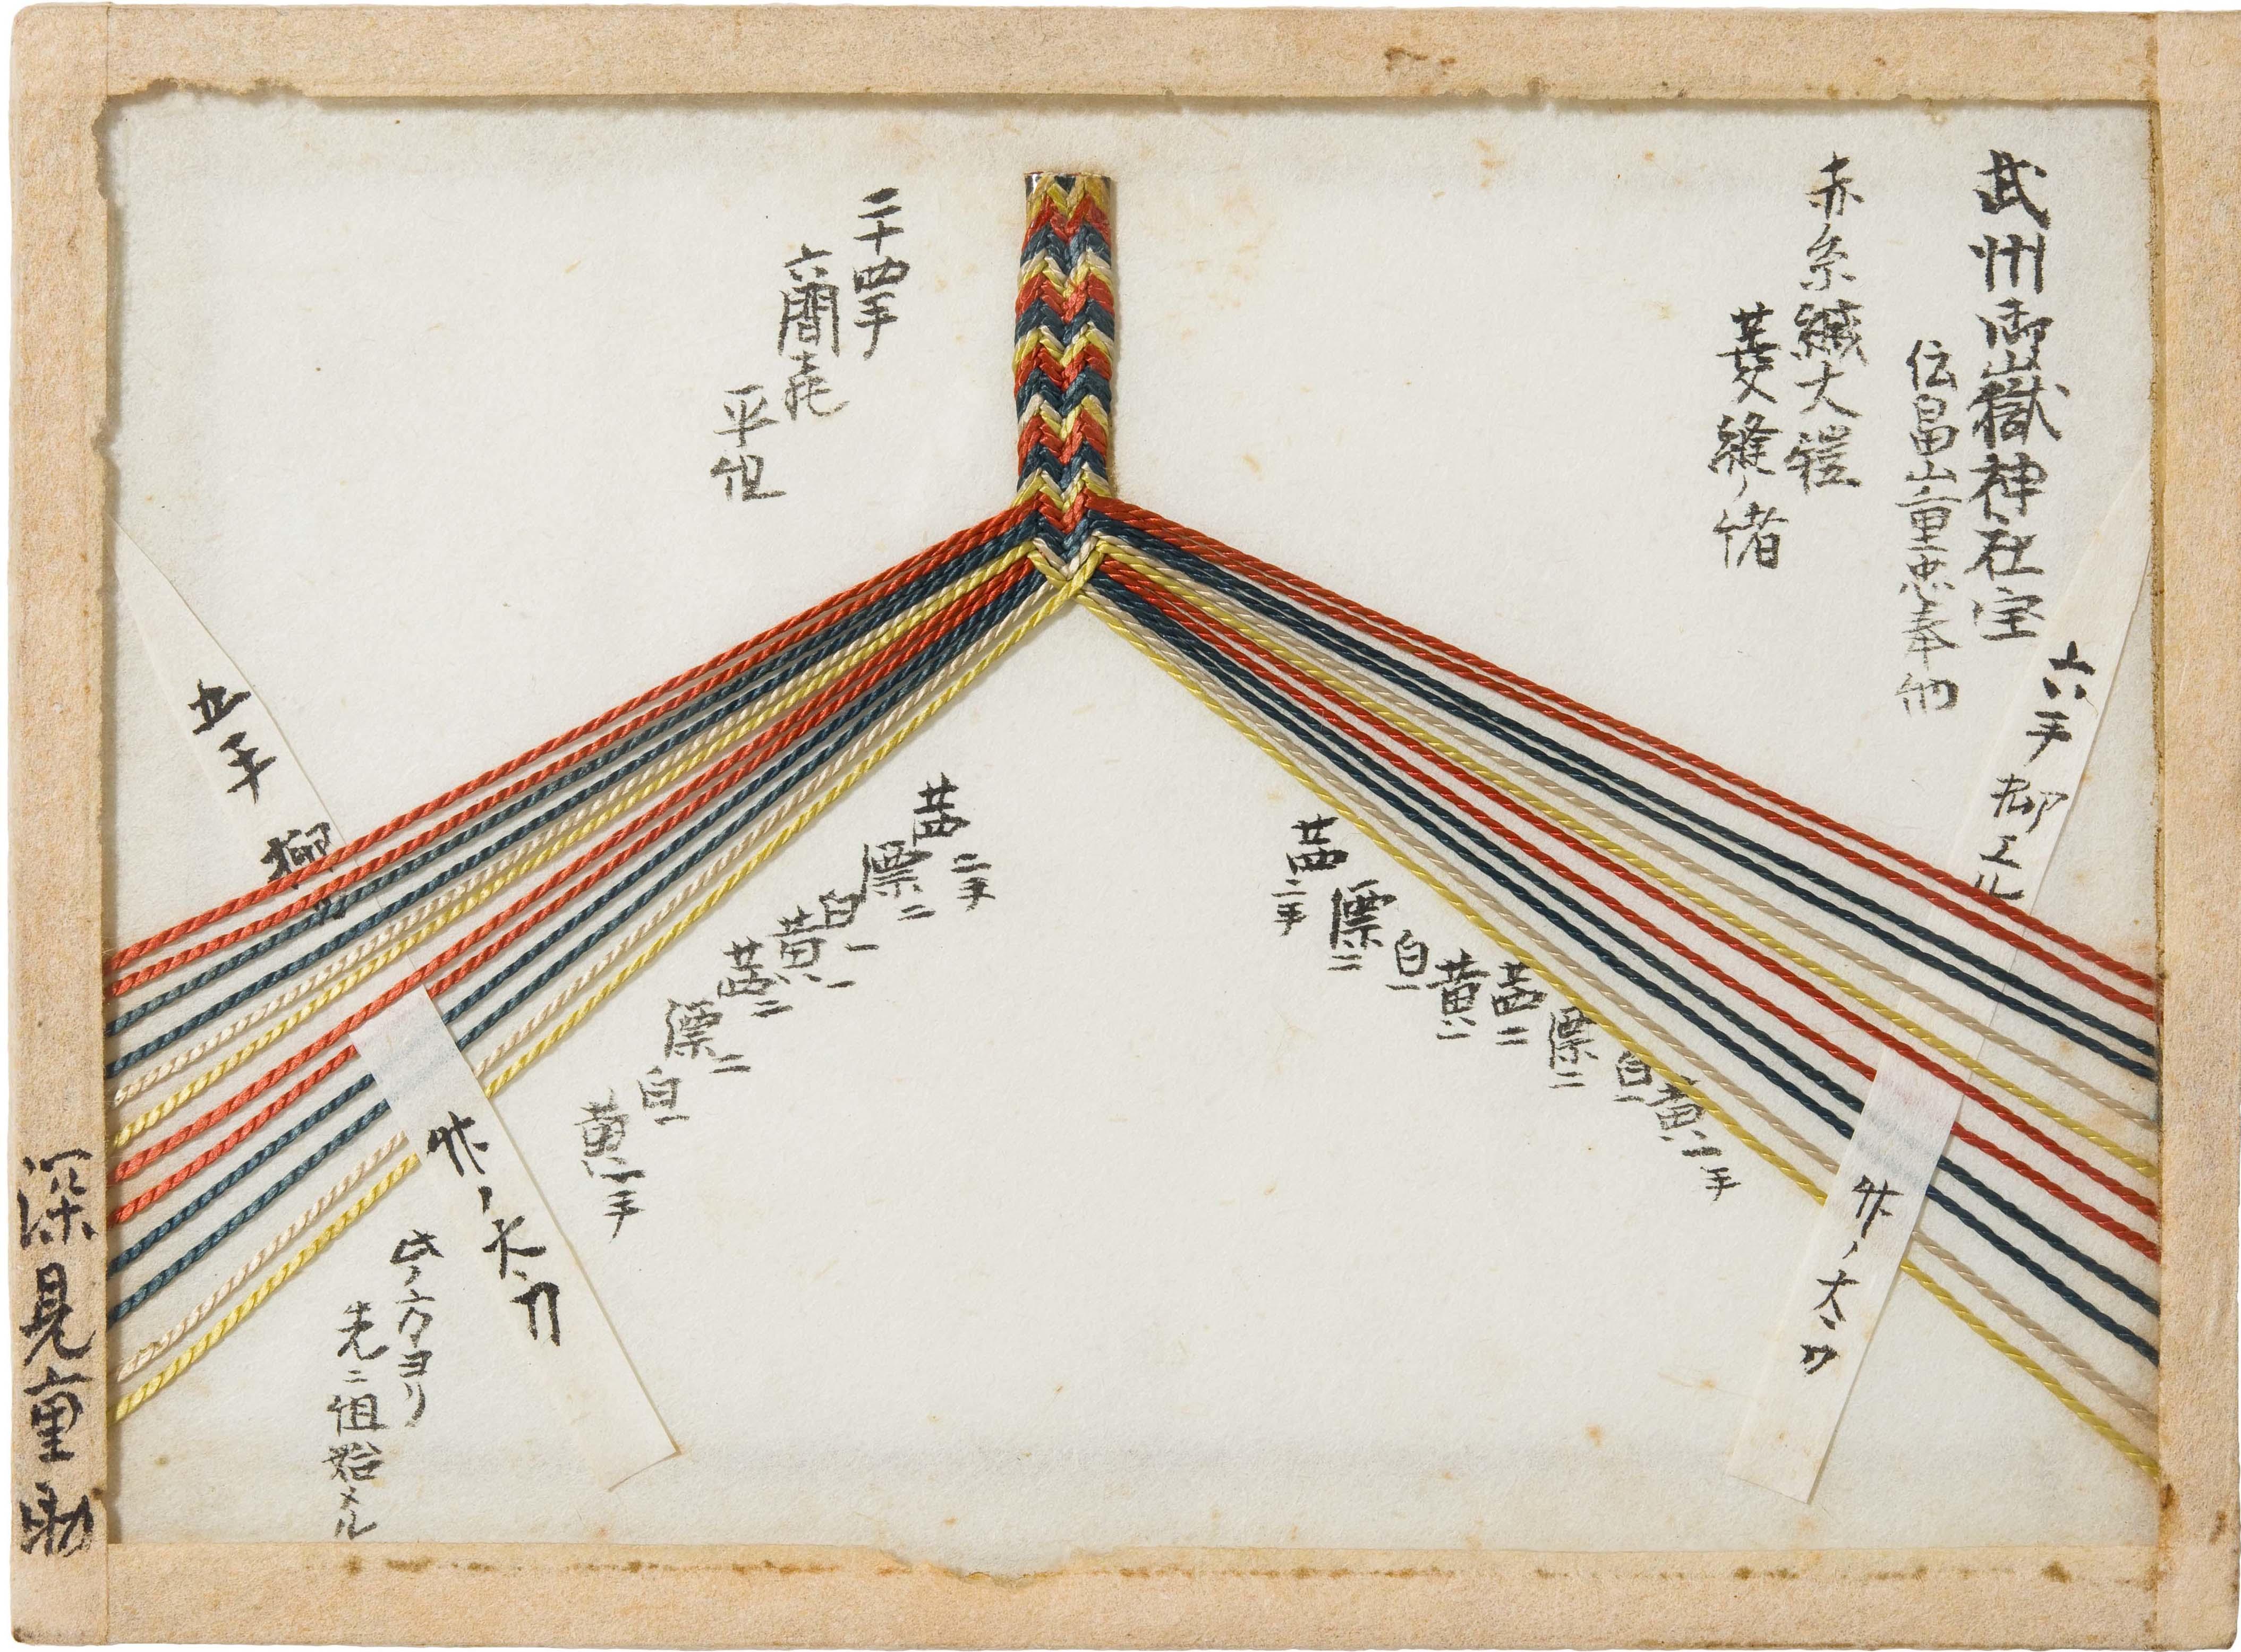 武州御嶽神社宝
伝畠山重忠奉納
赤糸縅大鎧
菱縫ノ緒
二十四手
六間飛
平组
六手
外ノ太刀
茜二手
縹二
白一
黄一
茜二
縹二
白一
黄一手
茜二手
縹二
白一
黄一
茜二
縹二
白一
黄一手
五手
外ノ太刀
此ノ方ヨリ
先ニ组始メル
深見重助